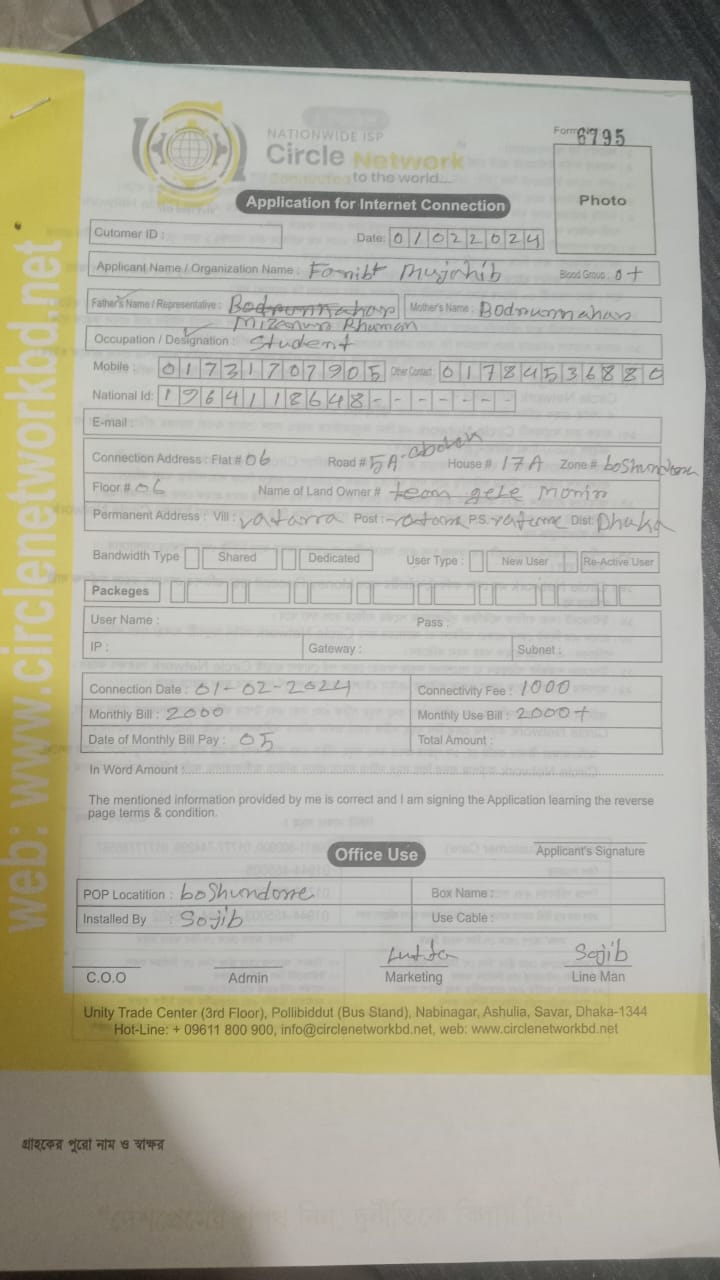 NATIONWIDE ISP
Circle Network
Connected to the world....
Form No 6795
Application for Internet Connection
Photo
Cutomer ID :
Date: 01022024
Applicant Name / Organization Name : Mujahib
Blood Group : O+
Father's Name / Representative : Bodrunnahar
Mizanur Rhuman
Mother's Name : Bodrunnahar
Occupation / Designation : Student
Mobile : 01731707905 Other Contact : 01784536880
National Id: 1964118648-------
E-mail :
Connection Address : Flat # 06 Road # 5A House # 17A Zone # boShundone
Floor # 06 Name of Land Owner # team gete Monin
Permanent Address : Vill : vatarra Post : P.S. Dist: Dhaka
Bandwidth Type Shared Dedicated User Type : New User Re-Active User
Packeges
User Name : Pass :
IP : Gateway : Subnet :
Connection Date : 01-02-2024 Connectivity Fee : 1000
Monthly Bill : 2000 Monthly Use Bill : 2000+
Date of Monthly Bill Pay : 05 Total Amount :
In Word Amount :
The mentioned information provided by me is correct and I am signing the Application learning the reverse
page terms & condition.
Office Use
Applicant's Signature
POP Locatition : boShundone Box Name :
Installed By : Sojib Use Cable :
Sojib
C.O.O Admin Marketing Line Man
Unity Trade Center (3rd Floor), Pollibiddut (Bus Stand), Nabinagar, Ashulia, Savar, Dhaka-1344
Hot-Line: + 09611 800 900, info@circlenetworkbd.net, web: www.circlenetworkbd.net
web: www.circlenetworkbd.net
গ্রাহকের পুরো নাম ও স্বাক্ষর